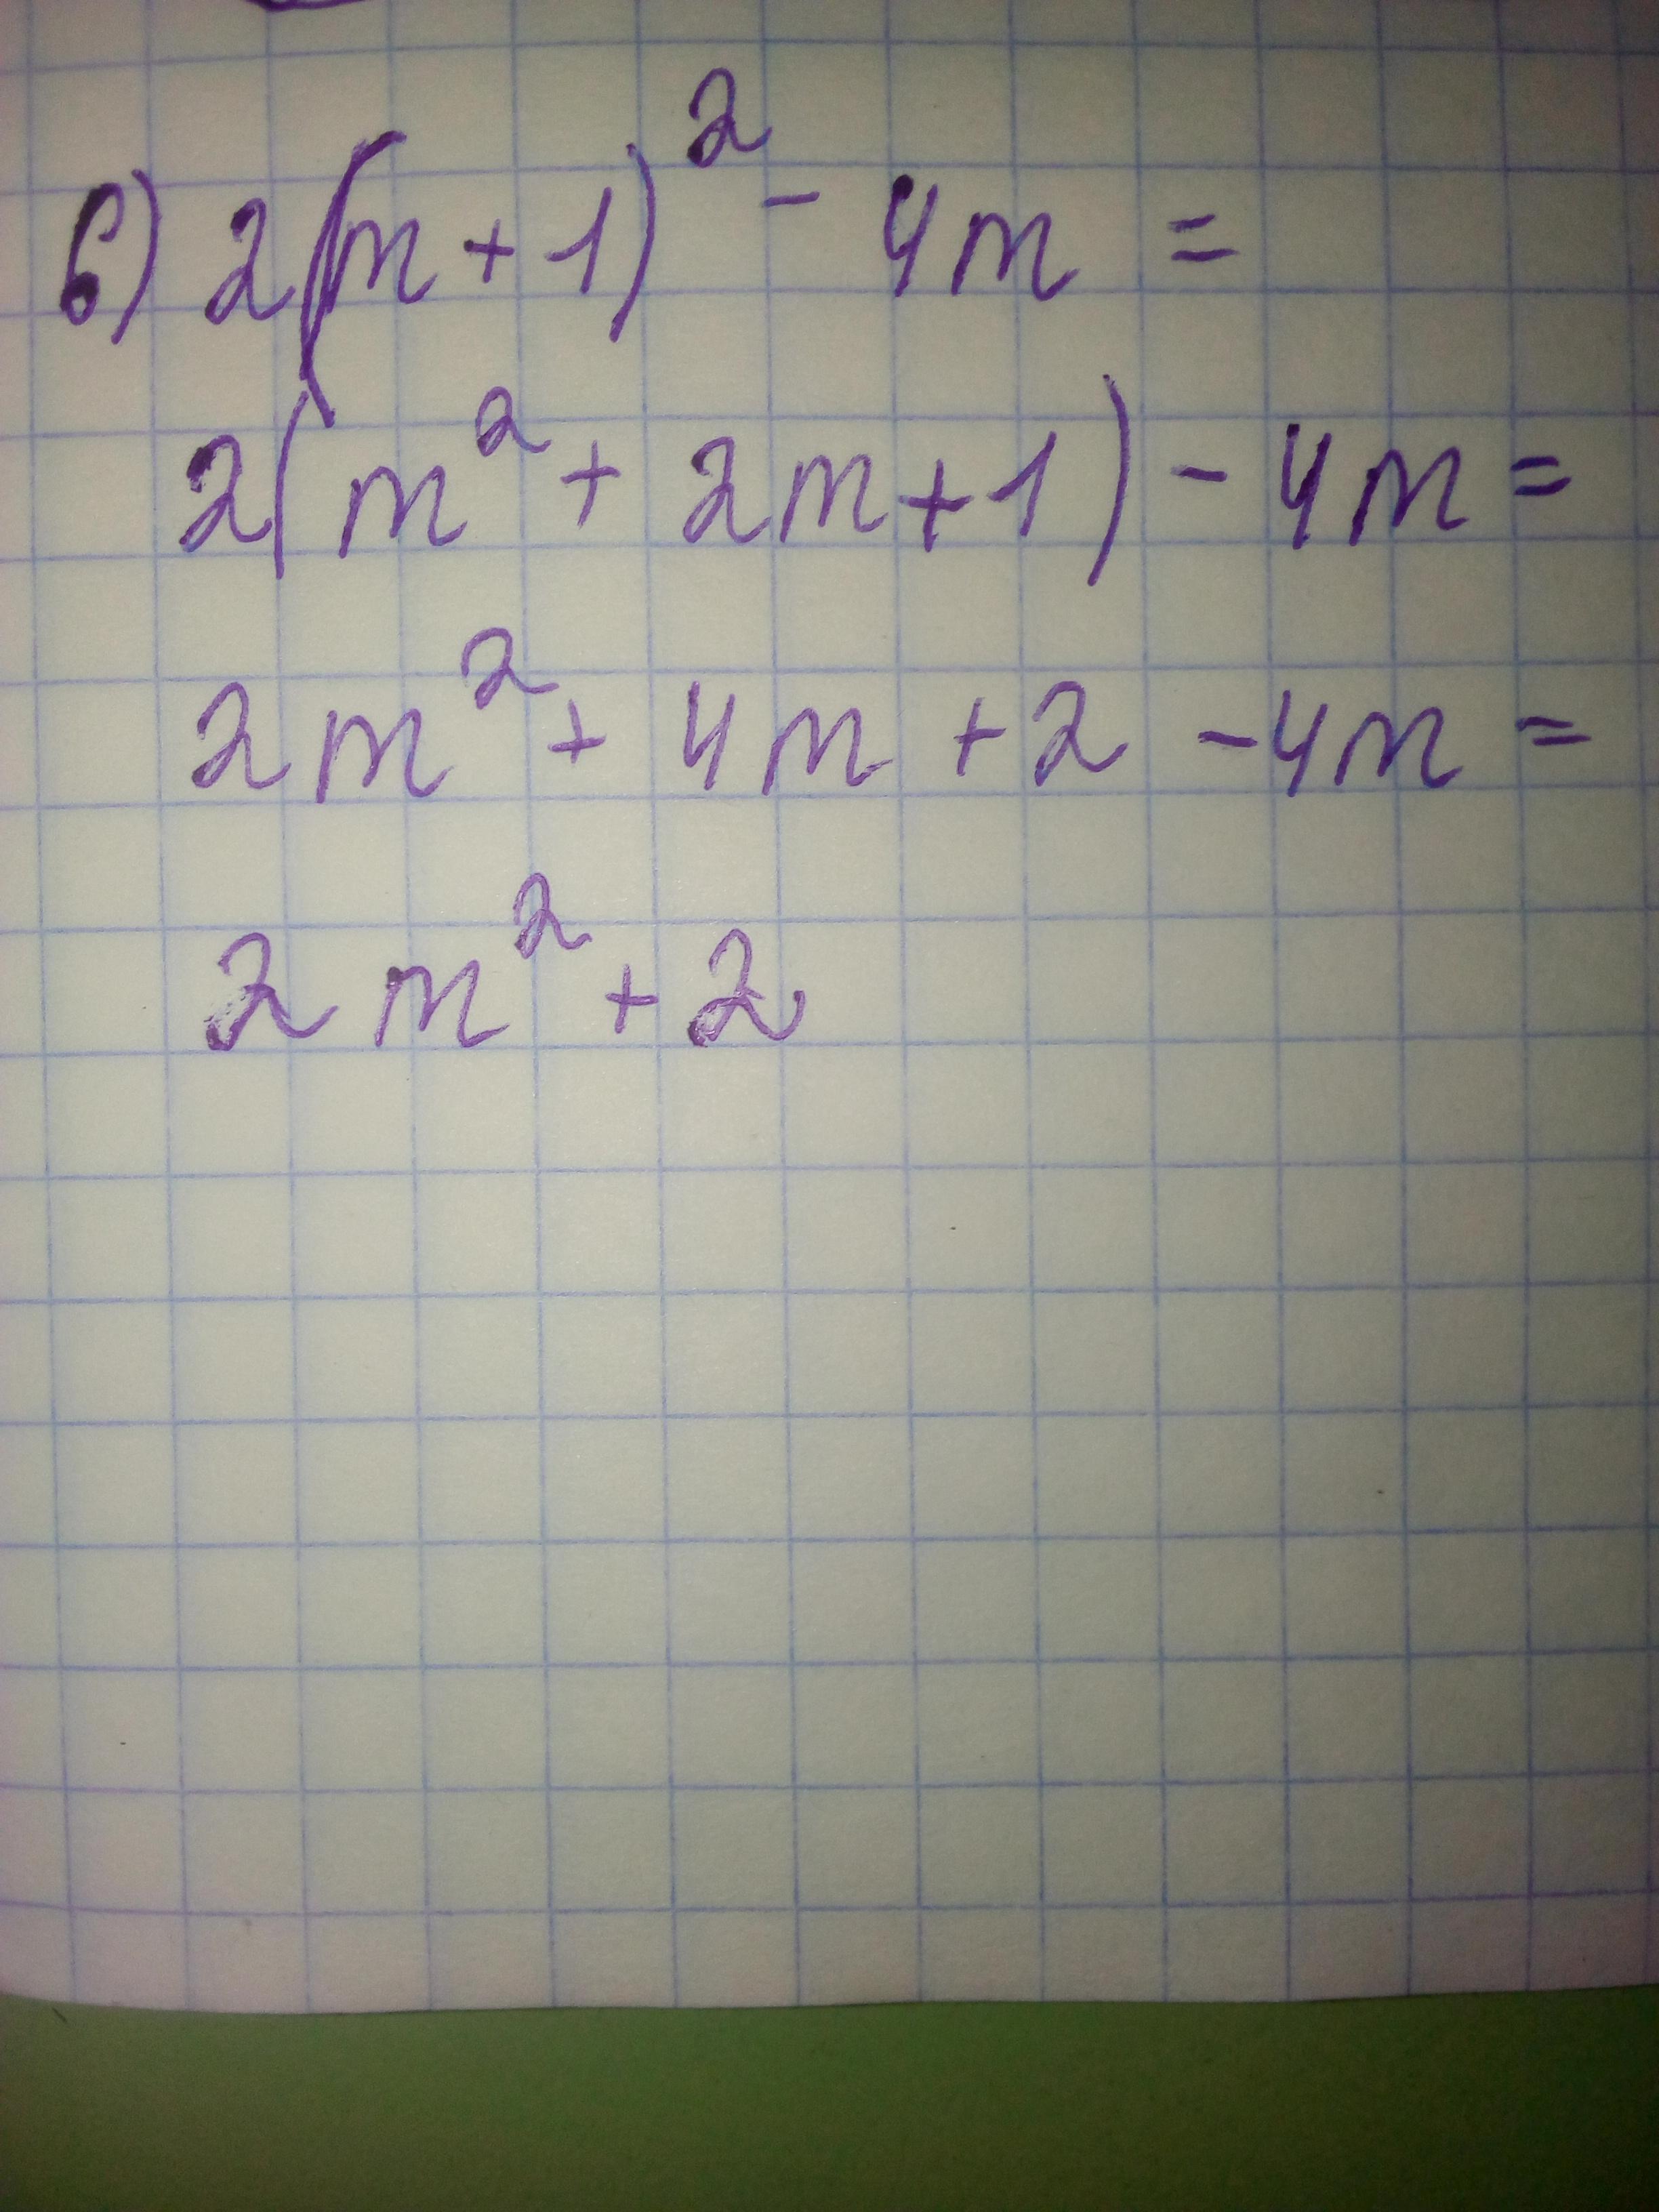 в) 2(m+1)² - 4m =
2(m² + 2m + 1) - 4m =
2m² + 4m + 2 - 4m =
2m² + 2